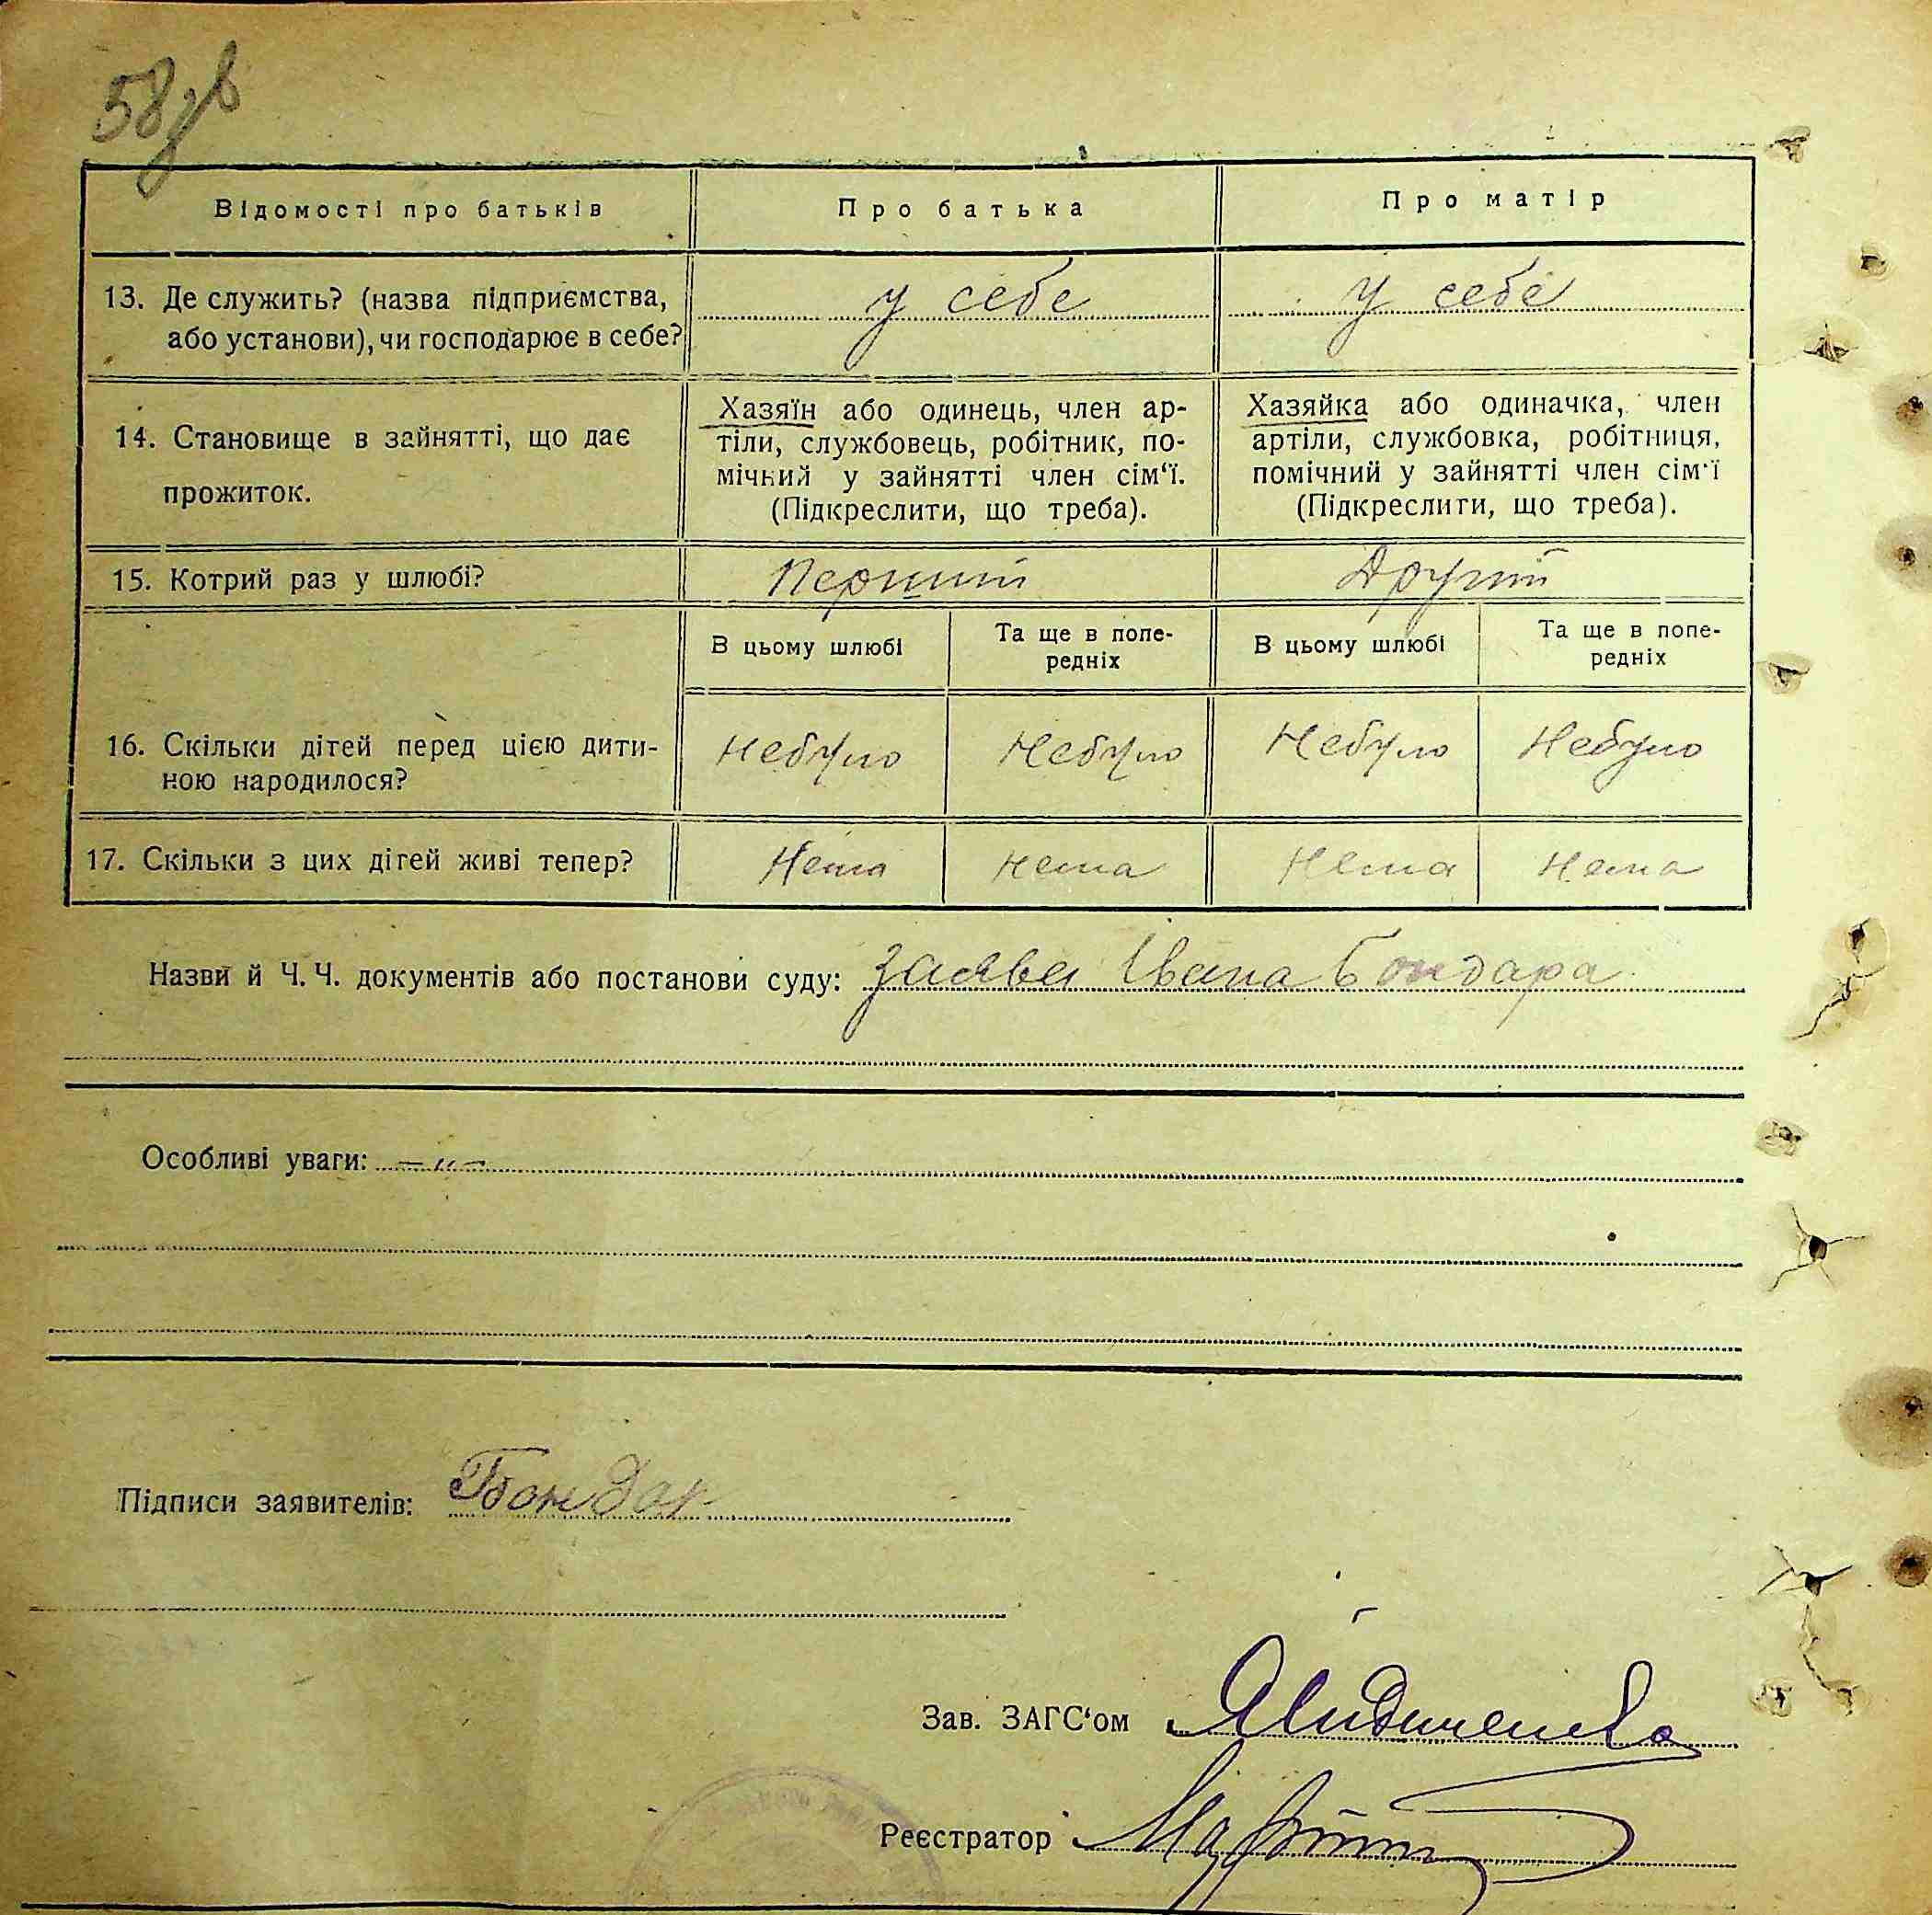 58зв
Відомості про батьків
Про батька
Про матір
13. Де служить? (назва підприємства,
або установи), чи господарює в себе?
у себе
у себе
14. Становище в зайнятті, що дає
прожиток.
Хазяїн або одинець, член ар-
тіли, службовець, робітник, по-
мічний у зайнятті член сім‘ї.
(Підкреслити, що треба).
Хазяйка або одиначка, член
артіли, службовка, робітниця,
помічний у зайнятті член сім‘ї
(Підкреслити, що треба).
15. Котрий раз у шлюбі?
Перший
Другий
В цьому шлюбі
Та ще в попе-
редніх
В цьому шлюбі
Та ще в попе-
редніх
16. Скільки дітей перед цією дити-
ною народилося?
Небуло
Небуло
Небуло
Небуло
17. Скільки з цих дітей живі тепер?
Нема
Нема
Нема
Нема
Назви й Ч. Ч. документів або постанови суду: заява Івана Бондара
Особливі уваги: –〃–
Підписи заявителів: Бондар
Зав. ЗАГС‘ом
Реєстратор